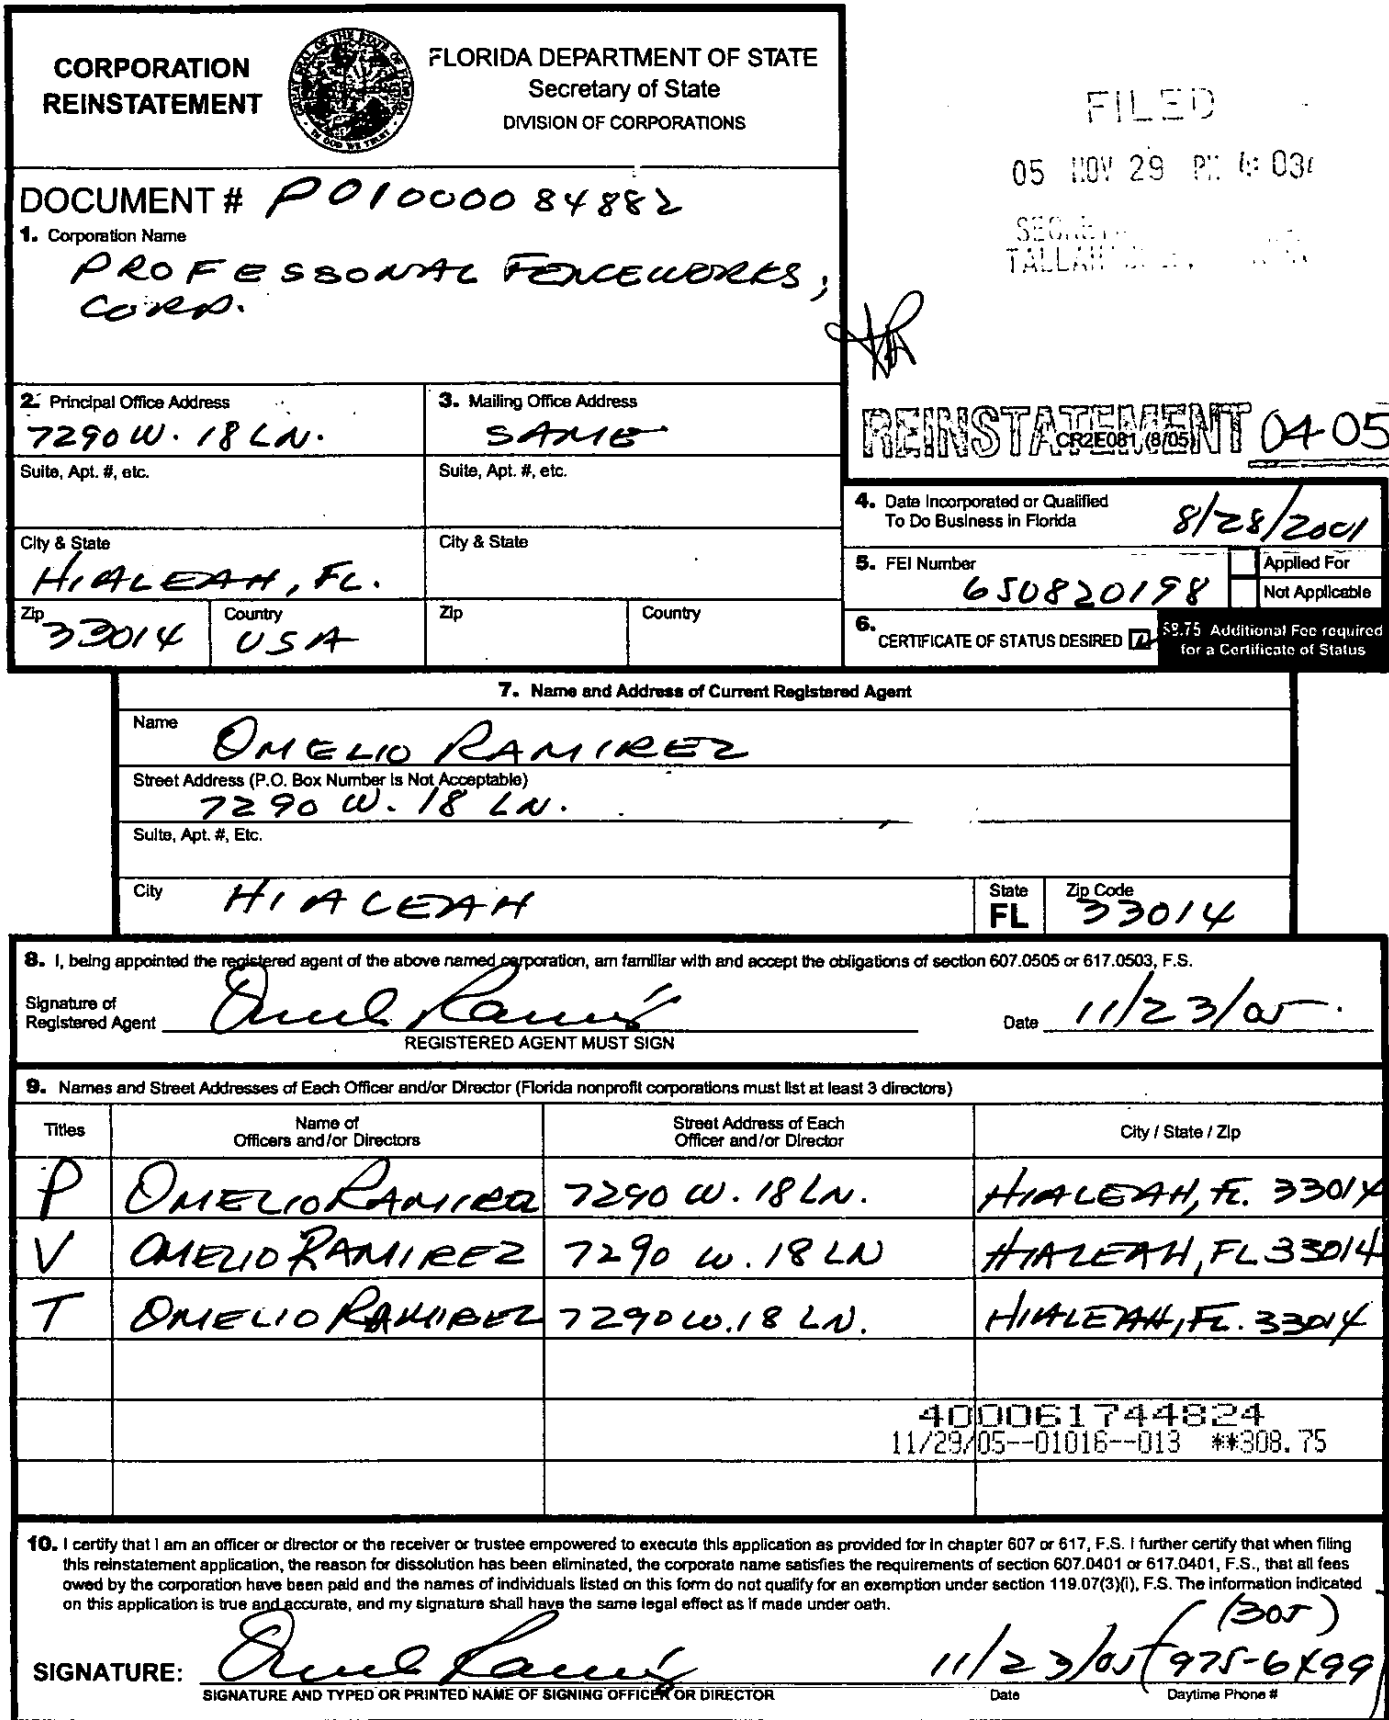 CORPORATION
REINSTATEMENT
FLORIDA DEPARTMENT OF STATE
Secretary of State
DIVISION OF CORPORATIONS
FILED
05 NOV 29 PM 4:03
TALLAH
DOCUMENT # P01000084882
1. Corporation Name
PROFESSIONAL FENCEWORKS,
CORP.
REINSTATEMENT 04-05
CR2E081 (8/05)
2. Principal Office Address
7290 W. 18 LN.
3. Mailing Office Address
SAME
Suite, Apt. #, etc.
Suite, Apt. #, etc.
City & State
HIALEAH, FL.
City & State
Zip
33014
Country
USA
Zip
Country
4. Date Incorporated or Qualified
To Do Business in Florida
8/28/2001
5. FEI Number
650820198
Applied For
Not Applicable
6. CERTIFICATE OF STATUS DESIRED
$8.75 Additional Fee required
for a Certificate of Status
7. Name and Address of Current Registered Agent
Name
OMELIO RAMIREZ
Street Address (P.O. Box Number Is Not Acceptable)
7290 W. 18 LN.
Suite, Apt. #, Etc.
City
HIALEAH
State
FL
Zip Code
33014
8. I, being appointed the registered agent of the above named corporation, am familiar with and accept the obligations of section 607.0505 or 617.0503, F.S.
Signature of
Registered Agent
REGISTERED AGENT MUST SIGN
Date 11/23/05.
9. Names and Street Addresses of Each Officer and/or Director (Florida nonprofit corporations must list at least 3 directors)
Titles
Name of
Officers and/or Directors
Street Address of Each
Officer and/or Director
City / State / Zip
P OMELIO RAMIREZ 7290 W. 18 LN. HIALEAH, FL. 33014
V OMELIO RAMIREZ 7290 W. 18 LN HIALEAH, FL 33014
T OMELIO RAMIREZ 7290 W. 18 LN. HIALEAH, FL. 33014
400061744824
11/29/05--01016--013 **308.75
10. I certify that I am an officer or director or the receiver or trustee empowered to execute this application as provided for in chapter 607 or 617, F.S. I further certify that when filing
this reinstatement application, the reason for dissolution has been eliminated, the corporate name satisfies the requirements of section 607.0401 or 617.0401, F.S., that all fees
owed by the corporation have been paid and the names of individuals listed on this form do not qualify for an exemption under section 119.07(3)(i), F.S. The information indicated
on this application is true and accurate, and my signature shall have the same legal effect as if made under oath.
SIGNATURE:
11/23/05
(305)
975-6499
SIGNATURE AND TYPED OR PRINTED NAME OF SIGNING OFFICER OR DIRECTOR
Date
Daytime Phone #